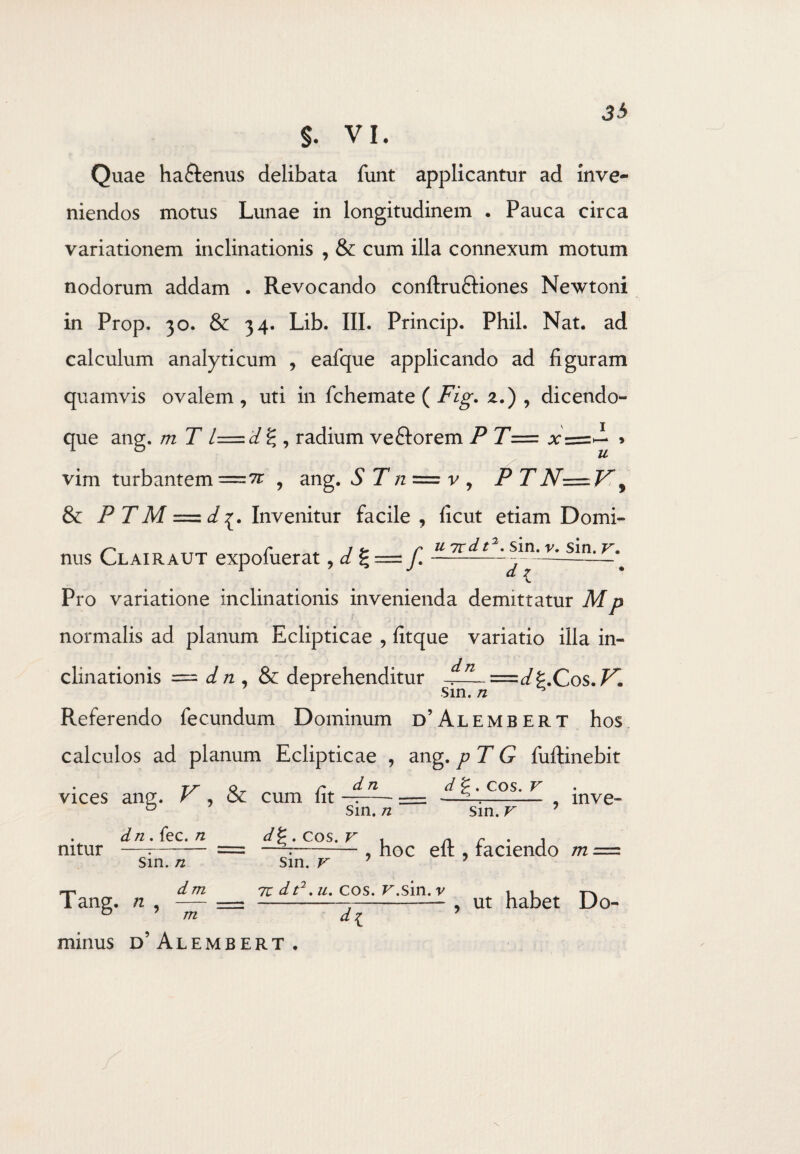 35
§. VI.
Quae hactenus delibata ſunt applicantur ad inve-
niendos motus Lunae in longitudinem . Pauca circa
variationem inclinationis , & cum illa connexum motum
nodorum addam . Revocando conſtructiones Newtoni
in Prop. 30. & 34. Lib. III. Princip. Phil. Nat. ad
calculum analyticum , eaſque applicando ad figuram
quamvis ovalem , uti in ſchemate ( Fig. 2.) , dicendo-
que ang. m T l = d ξ , radium vectorem P T = x = 1/u ,
vim turbantem = π , ang. S T n = v , P T N = V ,
& P T M = d ζ. Invenitur facile , ſicut etiam Domi-
nus CLAIRAUT expoſuerat , d ξ = ſ. (u π d t². sin. v. sin. V.)/(d ζ) .
Pro variatione inclinationis invenienda demittatur M p
normalis ad planum Eclipticae , ſitque variatio illa in-
clinationis = d n , & deprehenditur (d n)/(sin. n) = d ξ.Cos. V.
Referendo ſecundum Dominum D’ALEMBERT hos
calculos ad planum Eclipticae , ang. p T G ſuſtinebit
vices ang. V , & cum ſit (d n)/(sin. n) = (d ξ . cos. V)/(sin. V) , inve-
nitur (d n . ſec. n)/(sin. n) = (d ξ . cos. V)/(sin. V) , hoc eſt , faciendo m =
Tang. n , (d m)/(m) = (π d t². u. cos. V.sin. v)/(d ζ) , ut habet Do-
minus D’ ALEMBERT .